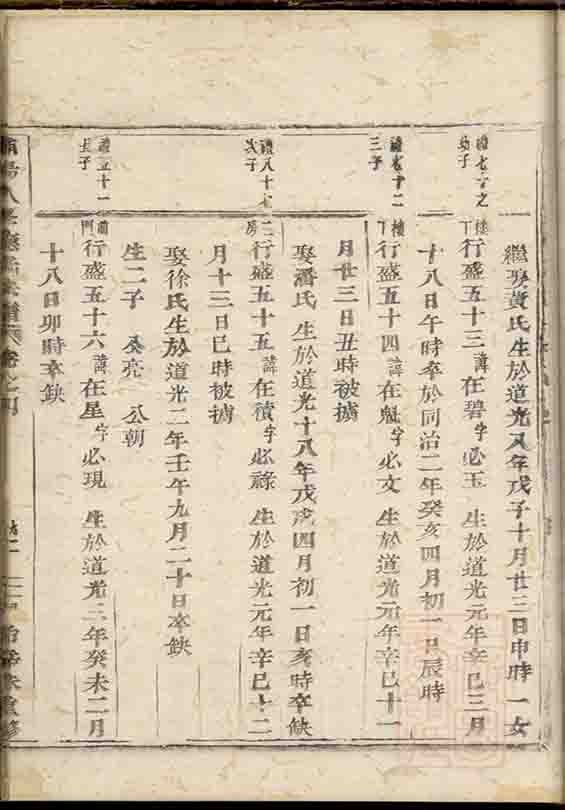 繼娶黃氏生於道光八年戊子十月廿三日申時一女
禮七十之
幼子
行盛五十三諱在碧字必玉生於道光元年辛巳三月
十八日午時卒於同治二年癸亥四月初一日辰時
三子
行盛五十四諱在魁字必文生於道光元年辛巳十一
月廿三日丑時被擄
娶潘氏生於道光十八年戊戌四月初一日亥時卒缺
禮八十七
次子
二房
行盛五十五諱在積字必祿生於道光元年辛巳十二
月十三日巳時被擄
娶徐氏生於道光二年壬午九月二十日卒缺
生二子 公亮 公朝
禮五十一
長子
前門
行盛五十六諱在星字必現生於道光三年癸未二月
十八日卯時卒缺